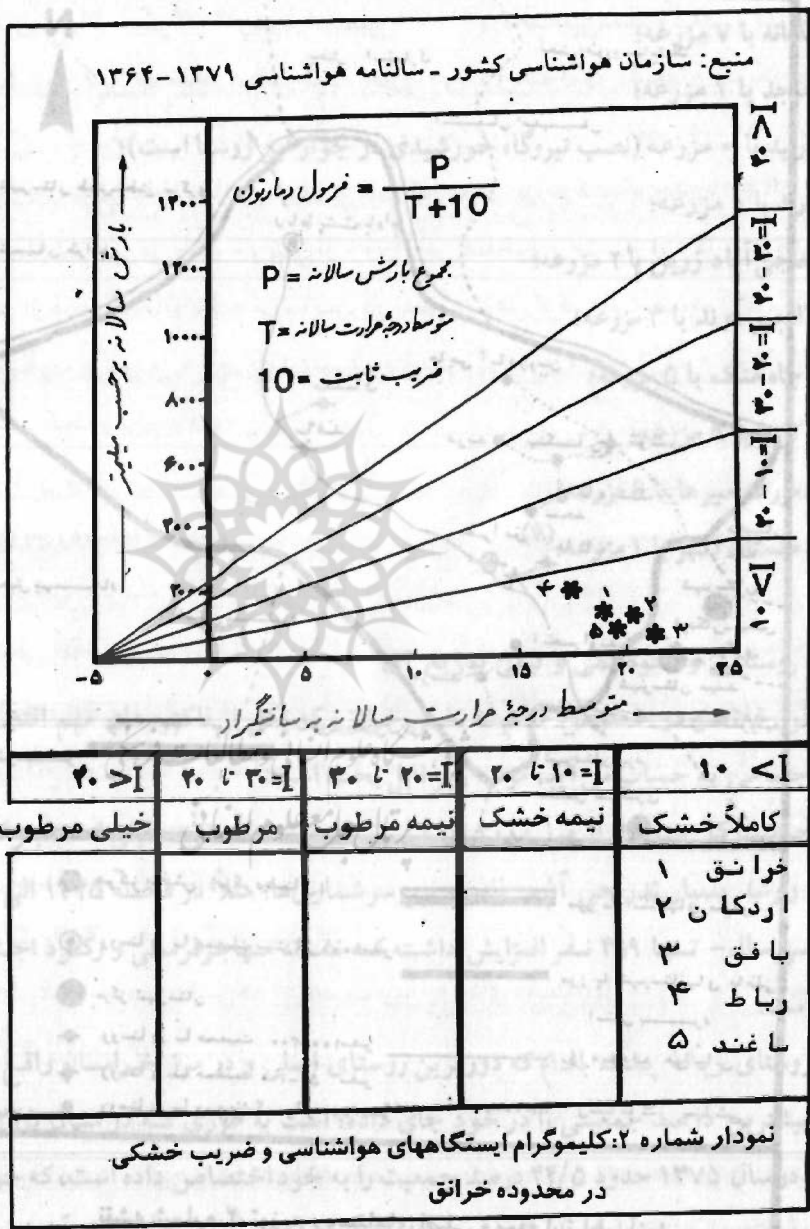 منبع: سازمان هواشناسی کشور - سالنامه هواشناسی ۱۳۷۹-۱۳۶۴
فرمول دمارتون = P / T+10
مجموع بارش سالانه = P
متوسط درجهٔ حرارت سالانه = T
ضریب ثابت = 10
بارش سالانه برحسب میلیمتر
۱۴۰۰
۱۲۰۰
۱۰۰۰
۸۰۰
۶۰۰
۴۰۰
۲۰۰
-۵ ۰ ۵ ۱۰ ۱۵ ۲۰ ۲۵
۴ ۱ ۲ ۵ ۳
I>۴۰
I=۳۰-۴۰
I=۲۰-۳۰
I=۱۰-۲۰
I<۱۰
متوسط درجهٔ حرارت سالانه به سانتیگراد
I< ۱۰ I=۱۰ تا ۲۰ I=۲۰ تا ۳۰ I=۳۰ تا ۴۰ I>۴۰
کاملاً خشک نیمه خشک نیمه مرطوب مرطوب خیلی مرطوب
خرانق ۱
اردکان ۲
بافق ۳
رباط ۴
ساغند ۵
نمودار شماره ۲: کلیموگرام ایستگاههای هواشناسی و ضریب خشکی
در محدوده خرانق